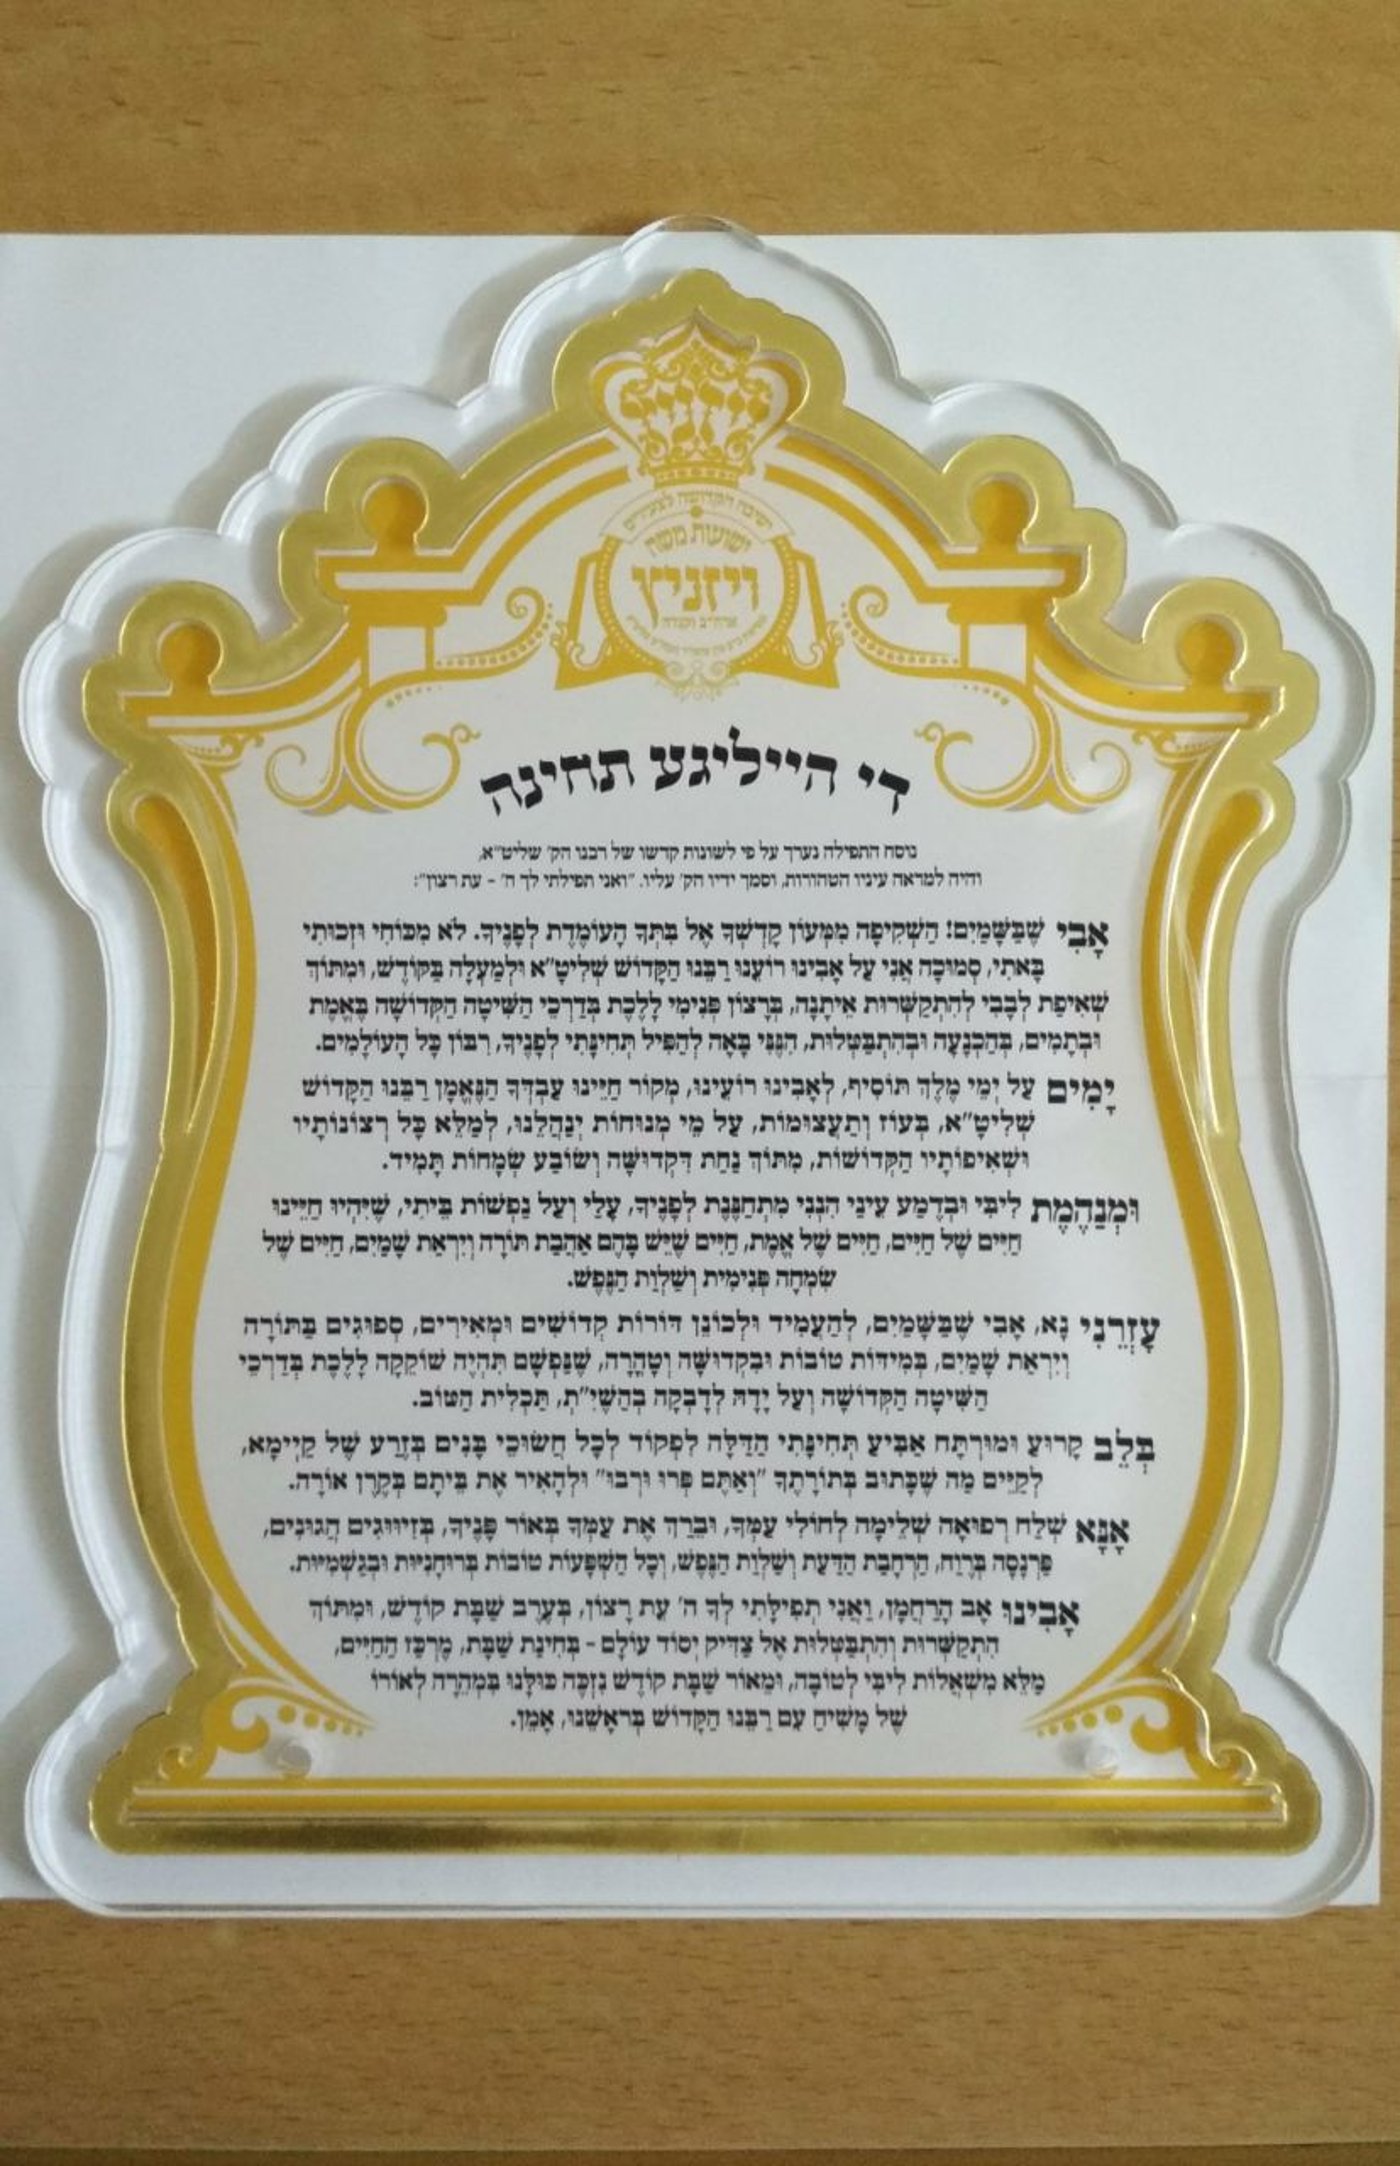 ישועות
ישיבה הקדושה לצעירים
ישועות משה
ויזניץ
די הייליגע תחינה
נוסח התפילה נערך על פי לשונות קדשו של רבנו הק׳ שליט״א,
והיה למראה עיניו הטהורות, וסמך ידיו הק׳ עליו. ״ואני תפילתי לך ה׳ - עת רצון״:
אָבִי שֶׁבַּשָּׁמַיִם! הַשְׁקִיפָה מִמְּעוֹן קָדְשְׁךָ אֶל בִּתְּךָ הָעוֹמֶדֶת לְפָנֶיךָ. לֹא מִכּוֹחִי וּזְכוּתִי
בָּאתִי, סְמוּכָה אֲנִי עַל אָבִינוּ רוֹעֵנוּ רַבֵּנוּ הַקָּדוֹשׁ שְׁלִיטָ״א וּלְמַעְלָה בַּקּוֹדֶשׁ, וּמִתּוֹךְ
שְׁאִיפַת לְבָבִי לְהִתְקַשְּׁרוּת אֵיתָנָה, בְּרָצוֹן פְּנִימִי לָלֶכֶת בְּדַרְכֵי הַשִּׁיטָה הַקְּדוֹשָׁה בֶּאֱמֶת
וּבְתָמִים, בְּהַכְנָעָה וּבְהִתְבַּטְּלוּת, הִנֶּנִּי בָּאָה לְהַפִּיל תְּחִינָתִי לְפָנֶיךָ, רִבּוֹן כָּל הָעוֹלָמִים.
יָמִים עַל יְמֵי מֶלֶךְ תּוֹסִיף, לְאָבִינוּ רוֹעֵינוּ, מְקוֹר חַיֵּינוּ עַבְדְּךָ הַנֶּאֱמָן רַבֵּנוּ הַקָּדוֹשׁ
שְׁלִיטָ״א, בְּעוֹז וְתַעֲצוּמוֹת, עַל מֵי מְנוּחוֹת יְנַהֲלֵנוּ, לְמַלֵּא כָּל רְצוֹנוֹתָיו
וּשְׁאִיפוֹתָיו הַקְּדוֹשׁוֹת, מִתּוֹךְ נַחַת דִּקְדוּשָּׁה וְשׂוֹבַע שְׂמָחוֹת תָּמִיד.
וּמְנַהֶמֶת לִיבִּי וּבְדֶמַע עֵינַי הִנְנִי מִתְחַנֶּנֶת לְפָנֶיךָ, עָלַי וְעַל נַפְשׁוֹת בֵּיתִי, שֶׁיִּהְיוּ חַיֵּינוּ
חַיִּים שֶׁל חַיִּים, חַיִּים שֶׁל אֱמֶת, חַיִּים שֶׁיֵּשׁ בָּהֶם אַהֲבַת תּוֹרָה וְיִרְאַת שָׁמַיִם, חַיִּים שֶׁל
שִׂמְחָה פְּנִימִית וְשַׁלְוַת הַנֶּפֶשׁ.
עָזְרֵנִי נָא, אָבִי שֶׁבַּשָּׁמַיִם, לְהַעֲמִיד וּלְכוֹנֵן דּוֹרוֹת קְדוֹשִׁים וּמְאִירִים, סְפוּגִים בַּתּוֹרָה
וְיִרְאַת שָׁמַיִם, בְּמִידּוֹת טוֹבוֹת וּבִקְדוּשָּׁה וְטָהֳרָה, שֶׁנַּפְשָׁם תִּהְיֶה שׁוֹקֵקָה לָלֶכֶת בְּדַרְכֵי
הַשִּׁיטָה הַקְּדוֹשָׁה וְעַל יָדָהּ לְדָבְקָה בְּהַשֵּׁי״ת, תַּכְלִית הַטּוֹב.
בְּלֵב קָרוּעַ וּמוּרְתָּח אַבִּיעַ תְּחִינָּתִי הַדַּלָּה לִפְקוֹד לְכָל חֲשׂוּכֵי בָּנִים בְּזֶרַע שֶׁל קַיָּימָא,
לְקַיֵּים מַה שֶּׁכָּתוּב בְּתוֹרָתֶךָ ״וְאַתֶּם פְּרוּ וּרְבוּ״ וּלְהָאִיר אֶת בֵּיתָם בְּקֶרֶן אוֹרָה.
אָנָּא שְׁלַח רְפוּאָה שְׁלֵימָה לְחוֹלֵי עַמֶּךָ, וּבָרֵךְ אֶת עַמְּךָ בְּאוֹר פָּנֶיךָ, בְּזִיווּגִים הֲגוּנִים,
פַּרְנָסָה בְּרֶוַח, הַרְחָבַת הַדַּעַת וְשַׁלְוַת הַנֶּפֶשׁ, וְכָל הַשְׁפָּעוֹת טוֹבוֹת בְּרוּחָנִיּוּת וּבְגַשְׁמִיּוּת.
אָבִינוּ אָב הָרַחֲמָן, וַאֲנִי תְפִילָּתִי לְךָ ה׳ עֵת רָצוֹן, בְּעֶרֶב שַׁבָּת קוֹדֶשׁ, וּמִתּוֹךְ
הִתְקַשְּׁרוּת וְהִתְבַּטְּלוּת אֶל צַדִּיק יְסוֹד עוֹלָם - בְּחִינַת שַׁבָּת, מֶרְכַּז הַחַיִּים,
מַלֵּא מִשְׁאֲלוֹת לִיבִּי לְטוֹבָה, וּמֵאוֹר שַׁבָּת קוֹדֶשׁ נִזְכֶּה כּוּלָּנוּ בִּמְהֵרָה לְאוֹרוֹ
שֶׁל מָשִׁיחַ עִם רַבֵּנוּ הַקָּדוֹשׁ בְּרֹאשֵׁנוּ, אָמֵן.